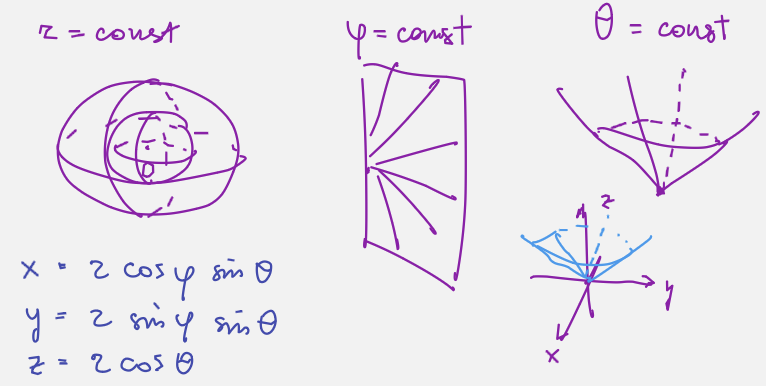 r = const
φ = const
θ = const
0
x = r cos φ sin θ
y = r sin φ sin θ
z = r cos θ
z
y
x